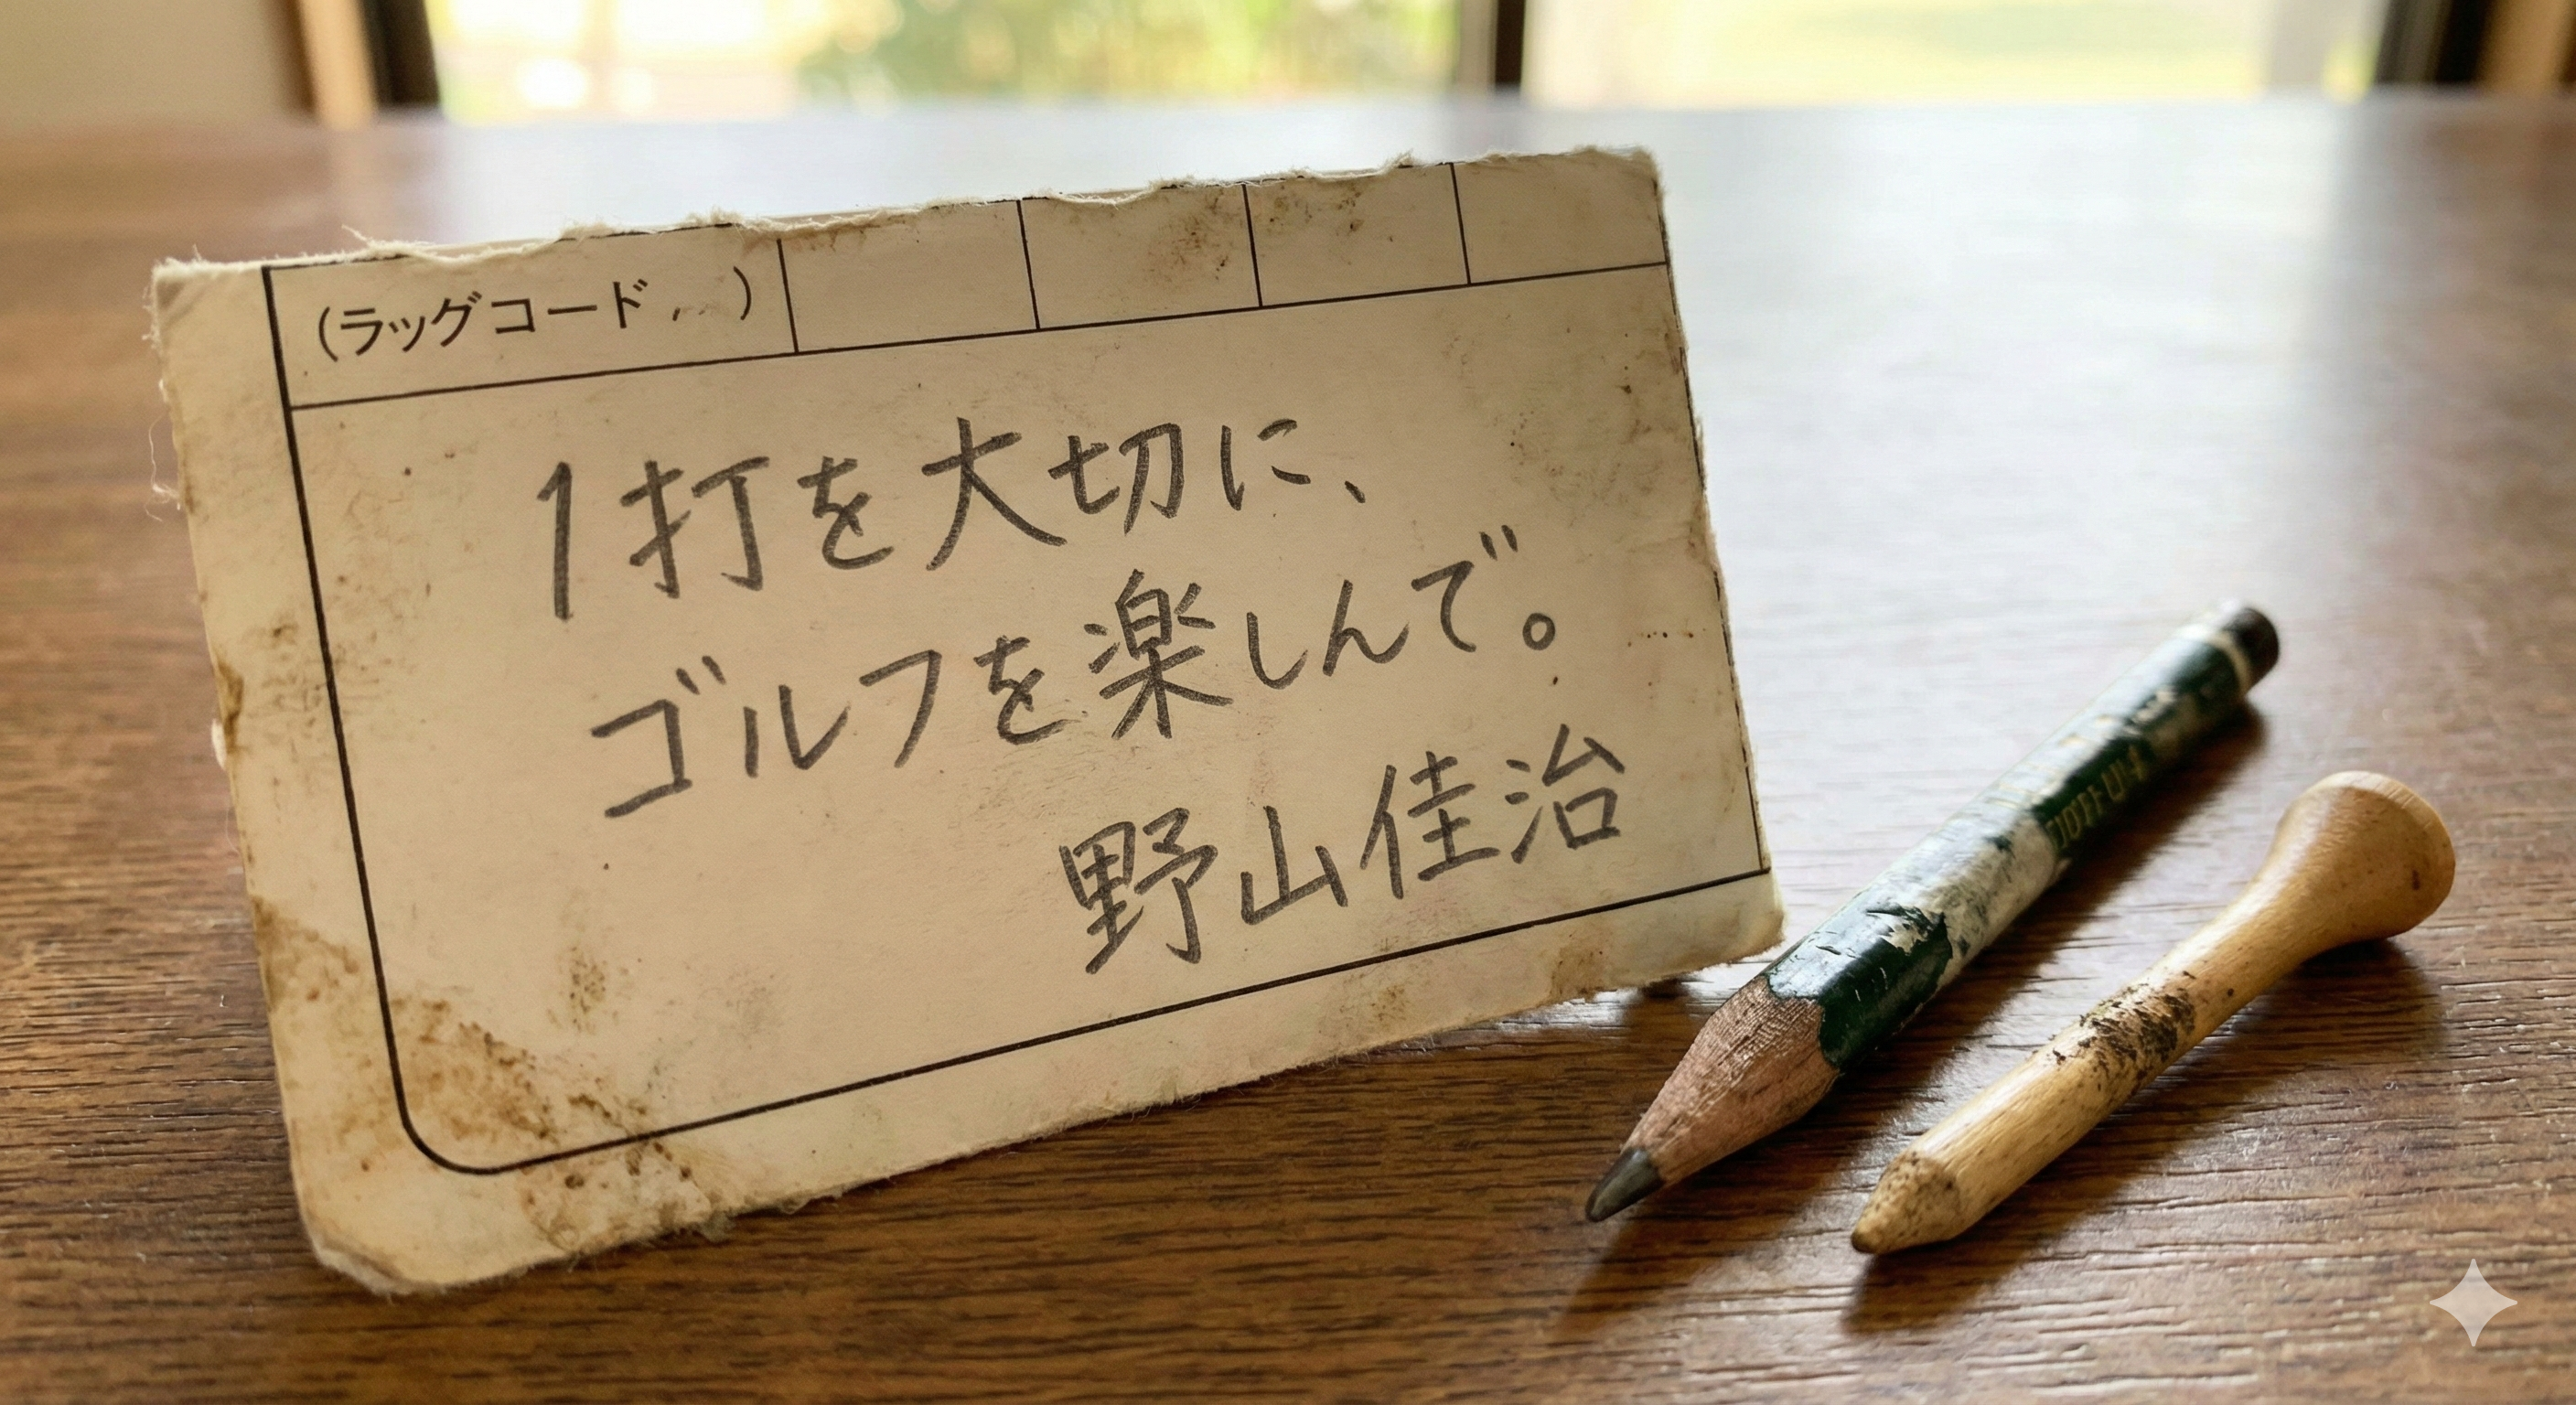 (ラッグコード )
1打を大切に、
ゴルフを楽しんで。
野山佳治